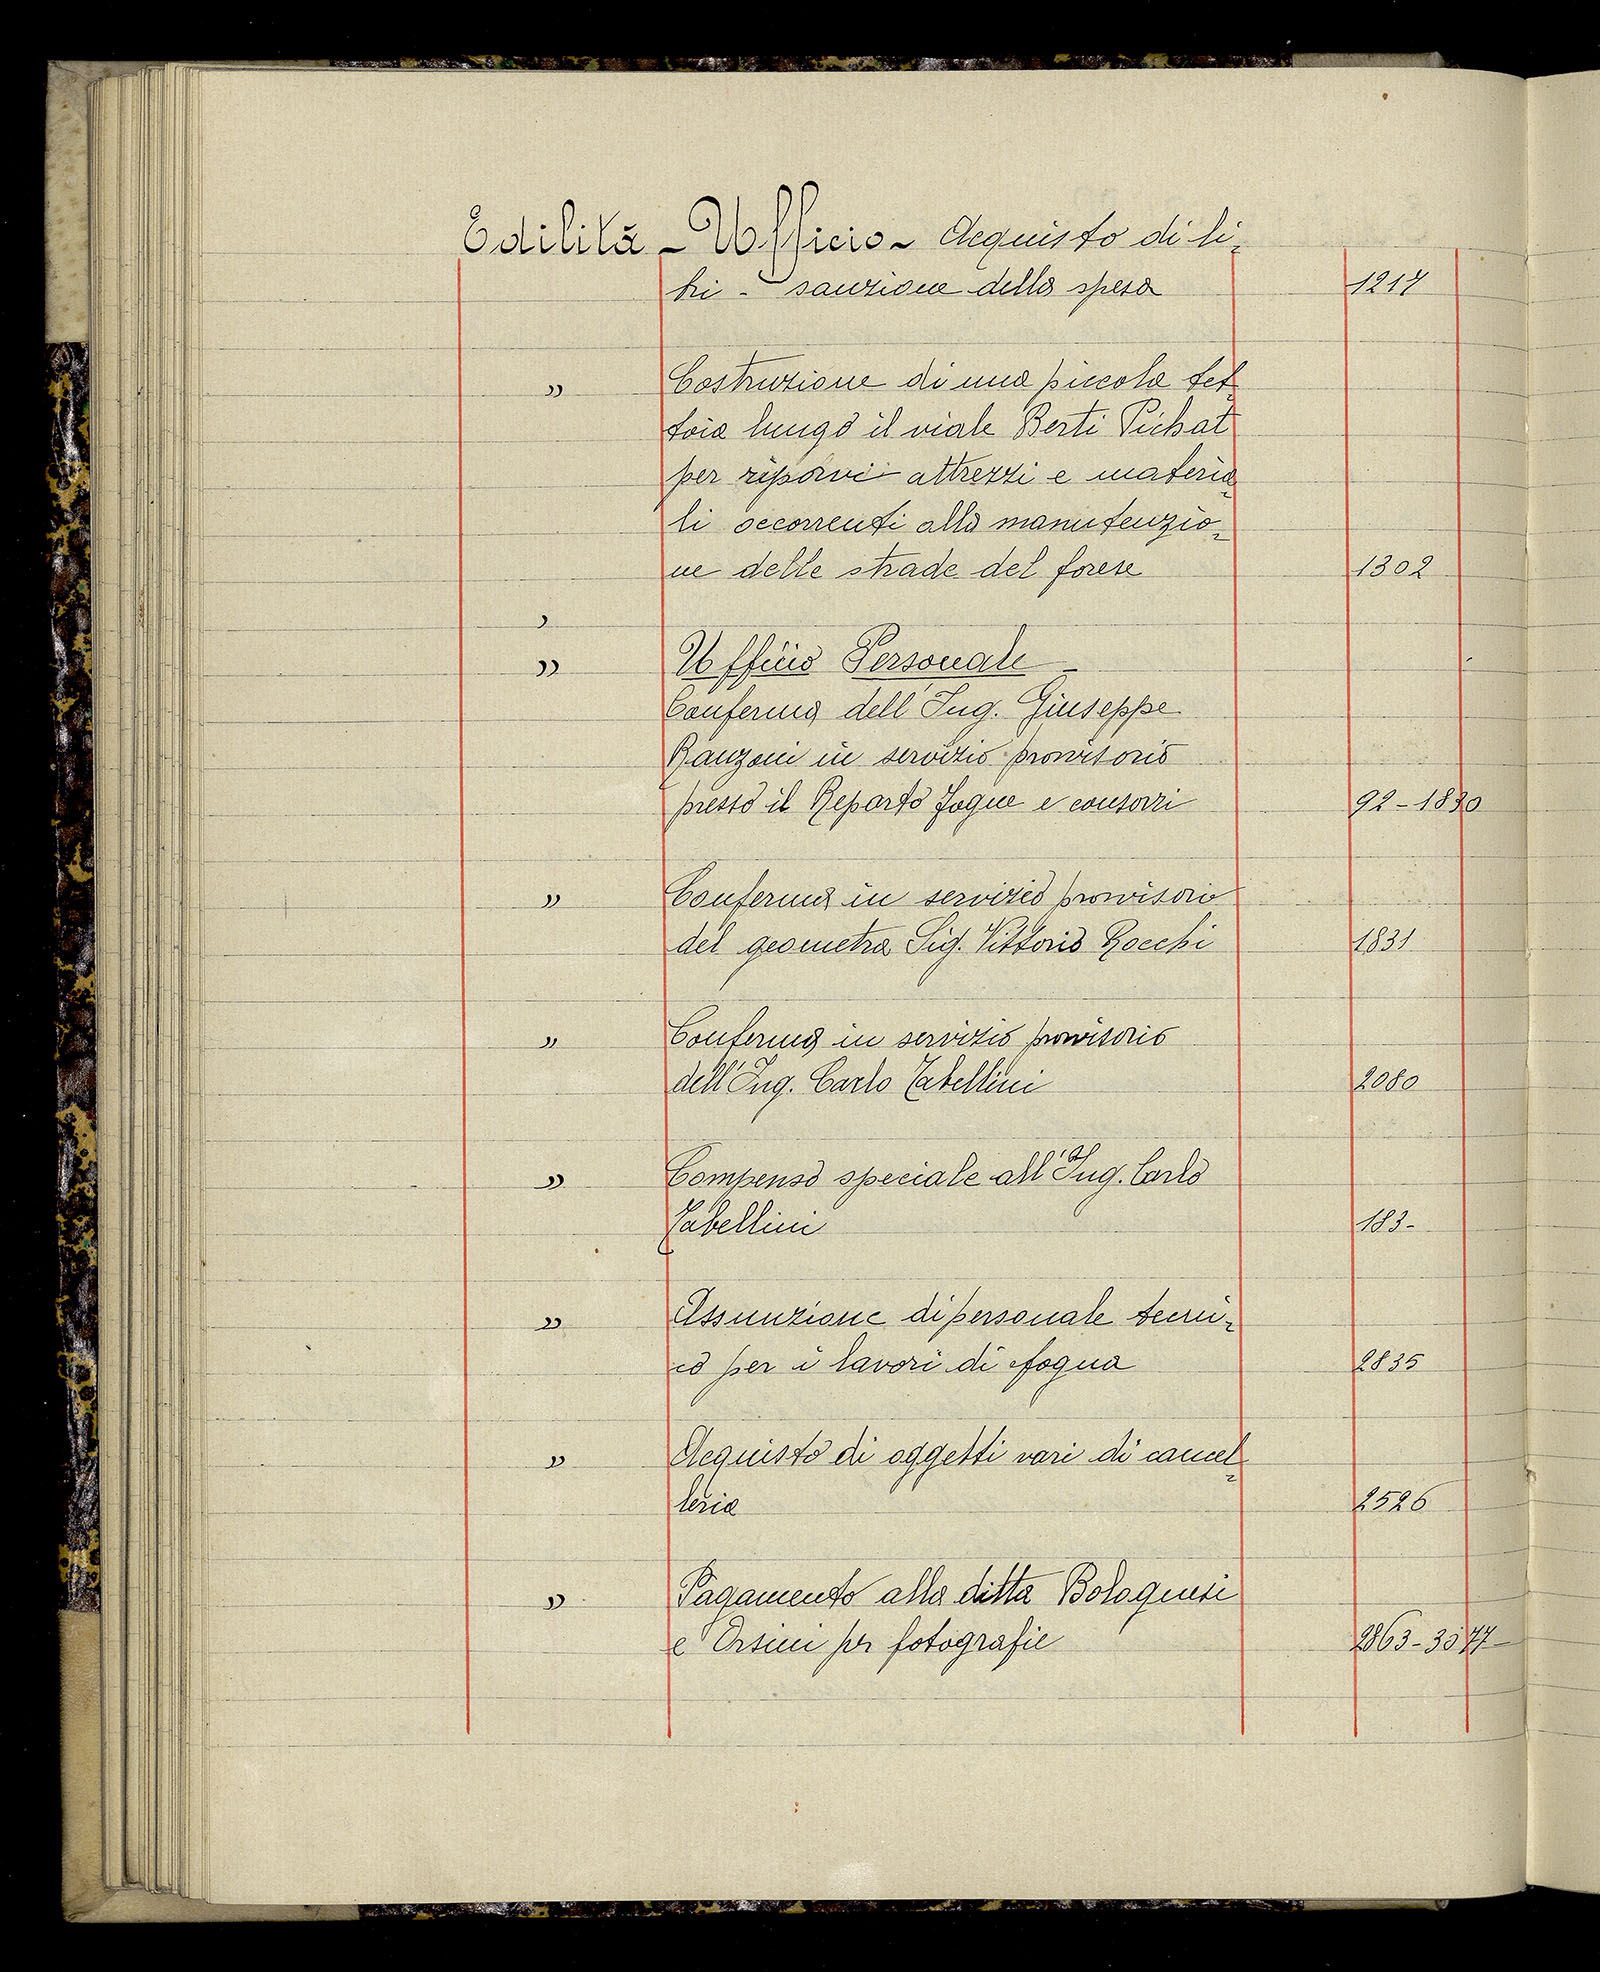 Edilità - Ufficio - Acquisto di li-
bri - sanzione della spesa 1217
" Costruzione di una piccola tet-
toia lungo il viale Berti Pichat
per riporvi attrezzi e materia-
li occorrenti alla manutenzio-
ne delle strade del forese 1302
"
" Ufficio Personale -
Conferma dell'Ing. Giuseppe
Ranzani in servizio provvisorio
presso il Reparto fogne e consorzi 92-1830
" Conferma in servizio provvisorio
del geometra Sig. Vittorio Rocchi 1831
" Conferma in servizio provvisorio
dell'Ing. Carlo Tabellini 2080
" Compenso speciale all'Ing. Carlo
Tabellini 183-
" Assunzione di personale tecni-
co per i lavori di fogna 2835
" Acquisto di oggetti vari di cancel-
leria 2526
" Pagamento alla ditta Bolognesi
e Orsini per fotografie 2863-3577